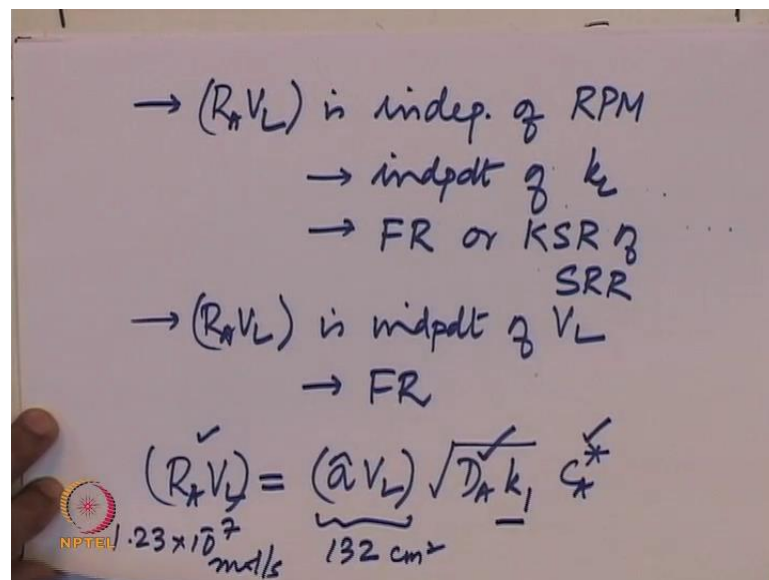 → (R_A V_L) is indep. of RPM
→ indpdt of k_L
→ FR or KSR of
SRR
→ (R_A V_L) is indpdt of V_L
→ FR
(R_A V_L) = (â V_L) √(D_A k_1) C_A^*
1.23×10^-7 mol/s 132 cm²
NPTEL